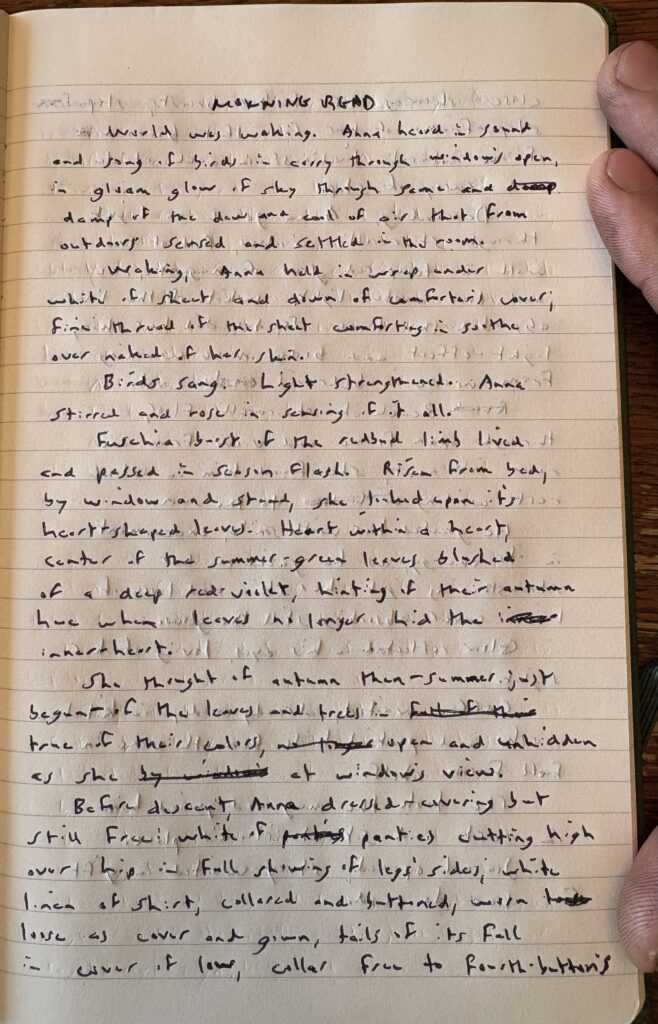 MORNING READ
World was waking. Anna heard in sound
and song of birds in carry through window's open,
in gleam glow of sky through same and
damp of the dew and cool of air that from
outdoors sensed and settled in the room.
Waking, Anna held in wrap under
white of sheet and down of comforter's cover;
fine thread of the sheet comforting in soothe
over naked of her skin.
Birds sang. Light strengthened. Anna
stirred and rose in sensing of it all.
Fuschia burst of the redbud limb lived
and passed in season flash. Risen from bed,
by window and stood, she looked upon its
heart-shaped leaves. Heart within a heart,
center of the summer-green leaves blushed
of a deep red-violet, hinting of their autumn
hue when leaves no longer hid the
inner heart.
She thought of autumn then-summer just
begun-of the leaves and trees in
true of their colors, open and unhidden
as she at window's view.
Before descent, Anna dressed-covering but
still free: white of panties cutting high
over hip in full showing of legs' sides; white
linen of shirt, collared and buttoned, worn
loose as cover and gown, tails of its fall
in cover of low, collar free to fourth-button's